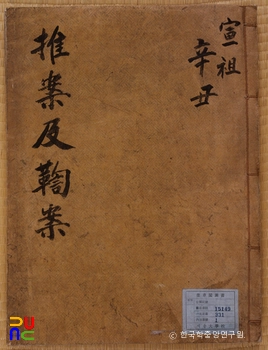 宣祖
辛丑
推案及鞫案
15149
331
1
© 한국학중앙연구원